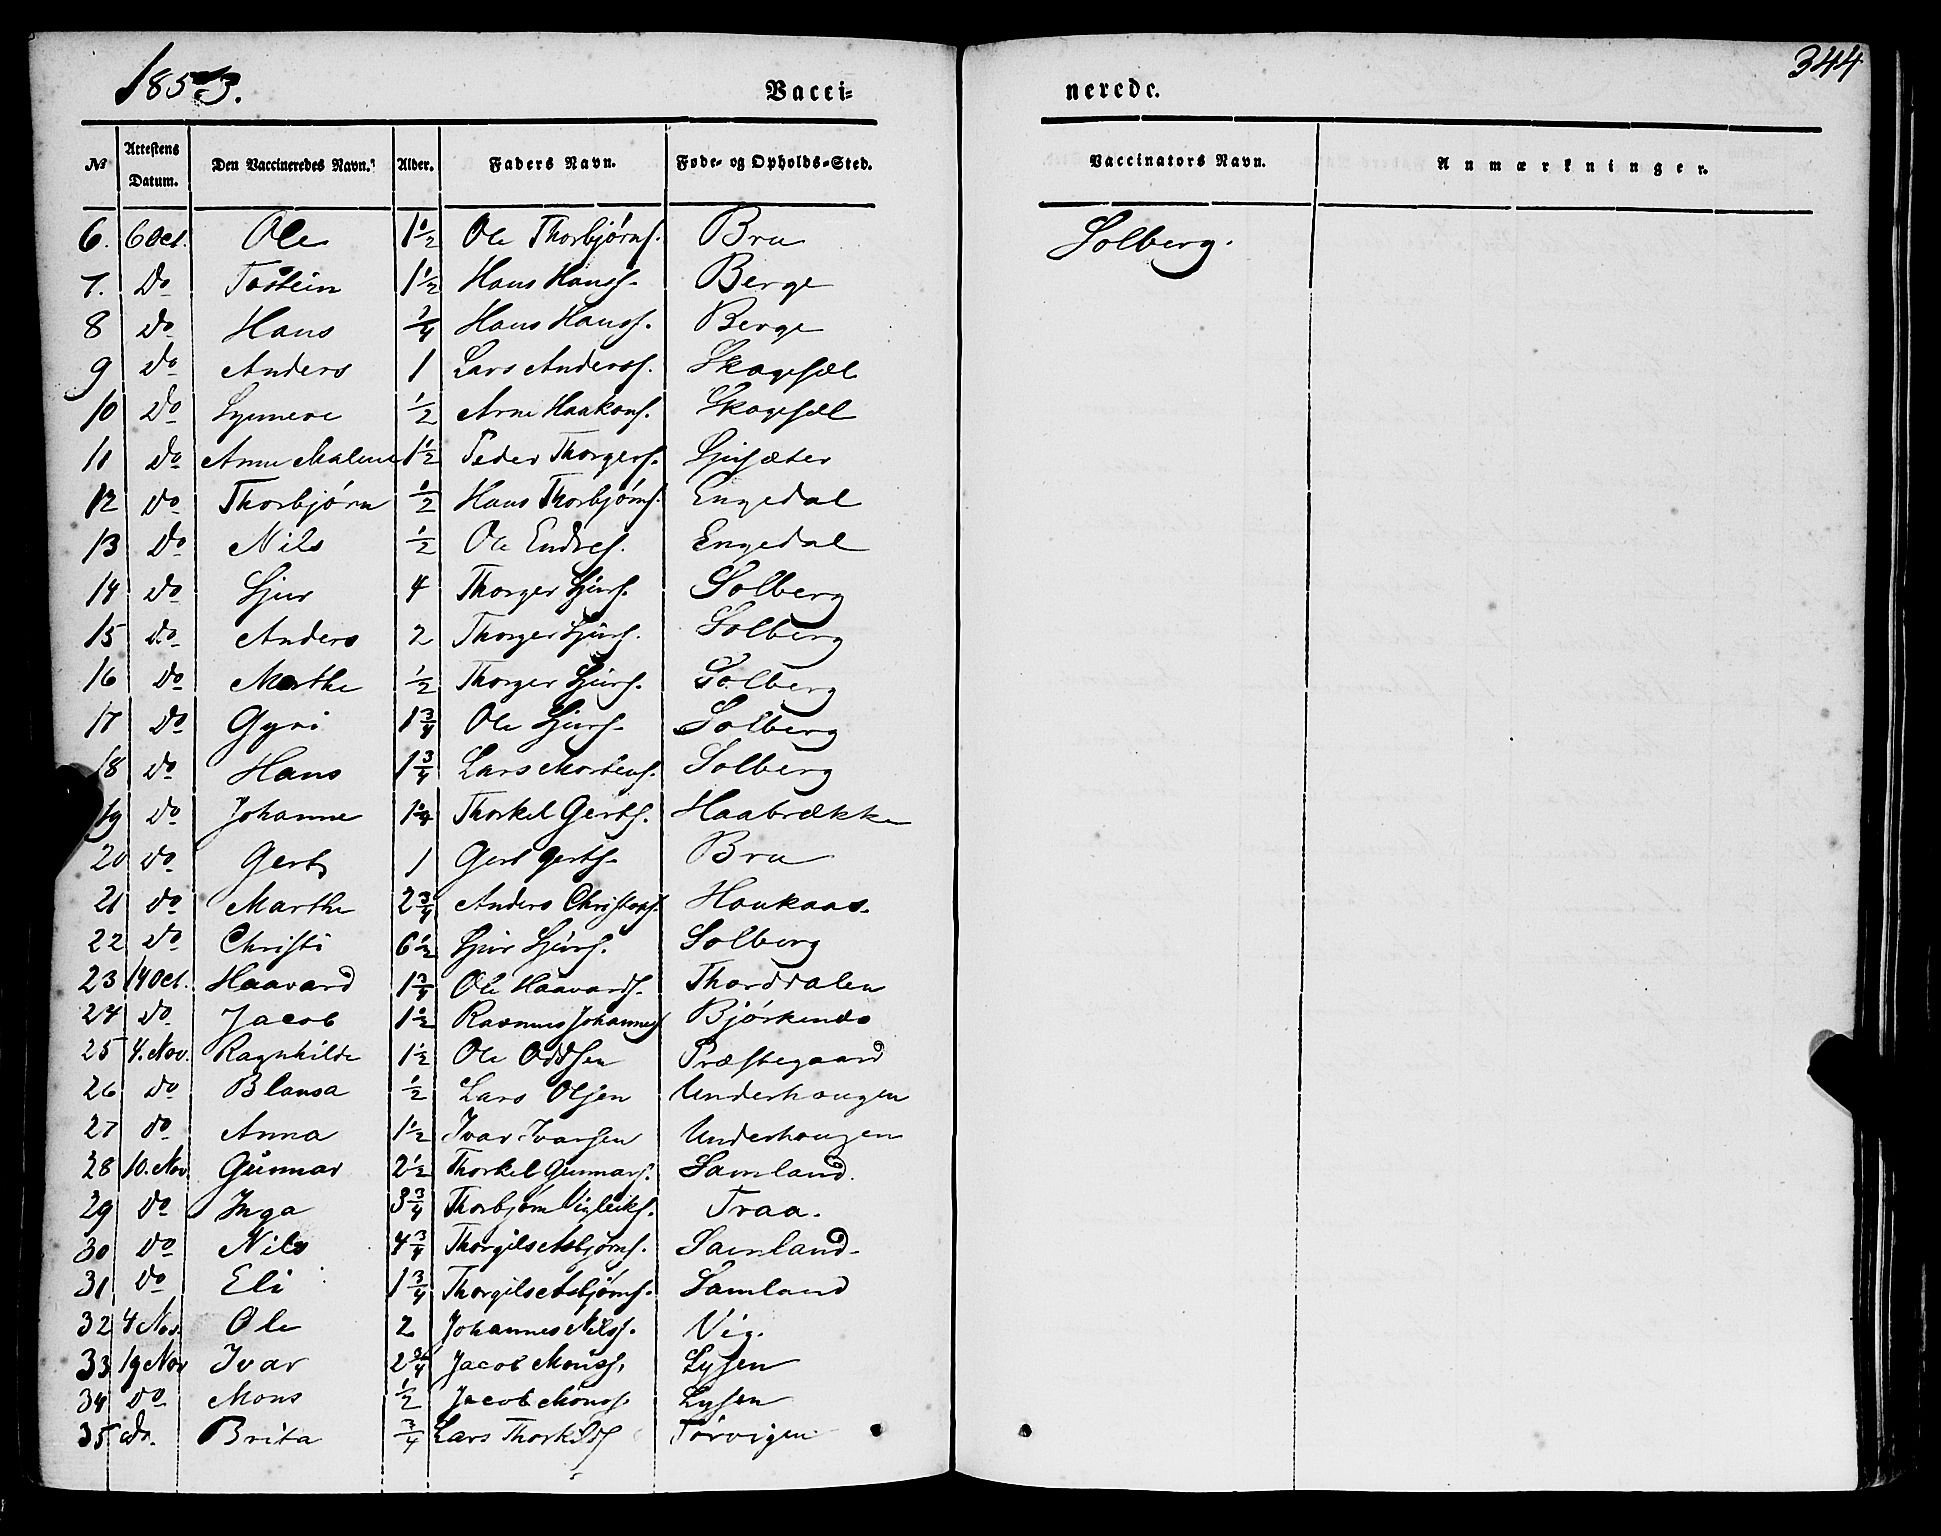 1853. Vacci=
nerede. 344
No Attestens Datum. Den Vaccineredes Navn. Alder. Faders Navn. Føde- og Opholds-Sted. Vaccinators Navn. Anmærkninger.
6. 6 Oct. Ole 1 1/2 Ole Thorbjørns. Bru Solberg.
7. Do Tostein 1 1/2 Hans Hanss. Berge
8 Do Hans 3/4 Hans Hanss. Berge
9 Do Anders 1 Lars Anderss. Skogesæl
10 Do Synneve 1/2 Arne Haakons. Skogesæl
11 Do Anne Malene 1 1/2 Peder Thorgers.
12 Do Thorbjørn 1/2 Hans Thorbjørns. Engedal
13 Do Nils 1/2 Ole Endres. Engedal
14 Do Sjur 4 Thorger Sjurs. Solberg
15 Do Anders 2 Thorger Sjurs. Solberg
16 Do Marthe 1/2 Thorger Sjurs. Solberg
17 Do Gyri 1 3/4 Ole Sjurs. Solberg
18 Do Hans 1 3/4 Lars Mortens. Solberg
19 Do Johanne 1 1/4 Thorkel Gerts. Haabrække
20 Do Gert 1 Gert Gerts. Bru
21 Do Marthe 2 3/4 Anders Christops. Haukaas.
22 Do Christi 6 1/2 Sjur Sjurs. Solberg
23 14 Oct. Haavard 1 3/4 Ole Haavards. Thorddalen
24 Do Jacob 1 1/2 Rasmus Johannes Bjørkenes
25 4. Nov. Ragnhilde 1 1/2 Ole Oddsen Præstegaard
26 Do Blansa 1/2 Lars Olsen Underhaugen
27 do Anna 1 1/2 Ivar Ivarsen Underhaugen
28 10. Nov. Gunnar 2 1/2 Thorkel Gunnars. Samland.
29 Do Inga 3 3/4 Thorbjørn Vigleiks. Traa.
30 Do Nils 4 3/4 Thorgils Asbjørns. Samland
31 Do Eli 1 3/4 Thorgils Asbjørns. Samland
32 4 Nov. Ole 2 Johannes Nilss. Vig.
33 19 Nov Ivar 2 3/4 Jacob Monss. Lysen
34 Do Mons 1/2 Jacob Monss. Lysen
35 do. Brita 3/4 Lars Thorkilds Tørvigen